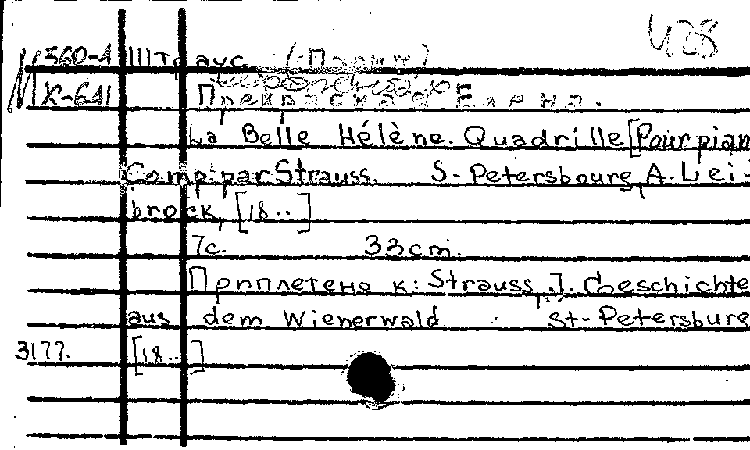 428
М 560-4 Штраус (Париж)
К-641 Прекрасная Елена.
La Belle Hélène. Quadrille [Pour pian
Comp. par Strauss. S-Petersbourg, A. Lei-
brock, [18..]
7с. 33cm.
Приплетено к: Strauss, J. Geschichte
aus dem Wienerwald St-Petersburg
3177. [18..]